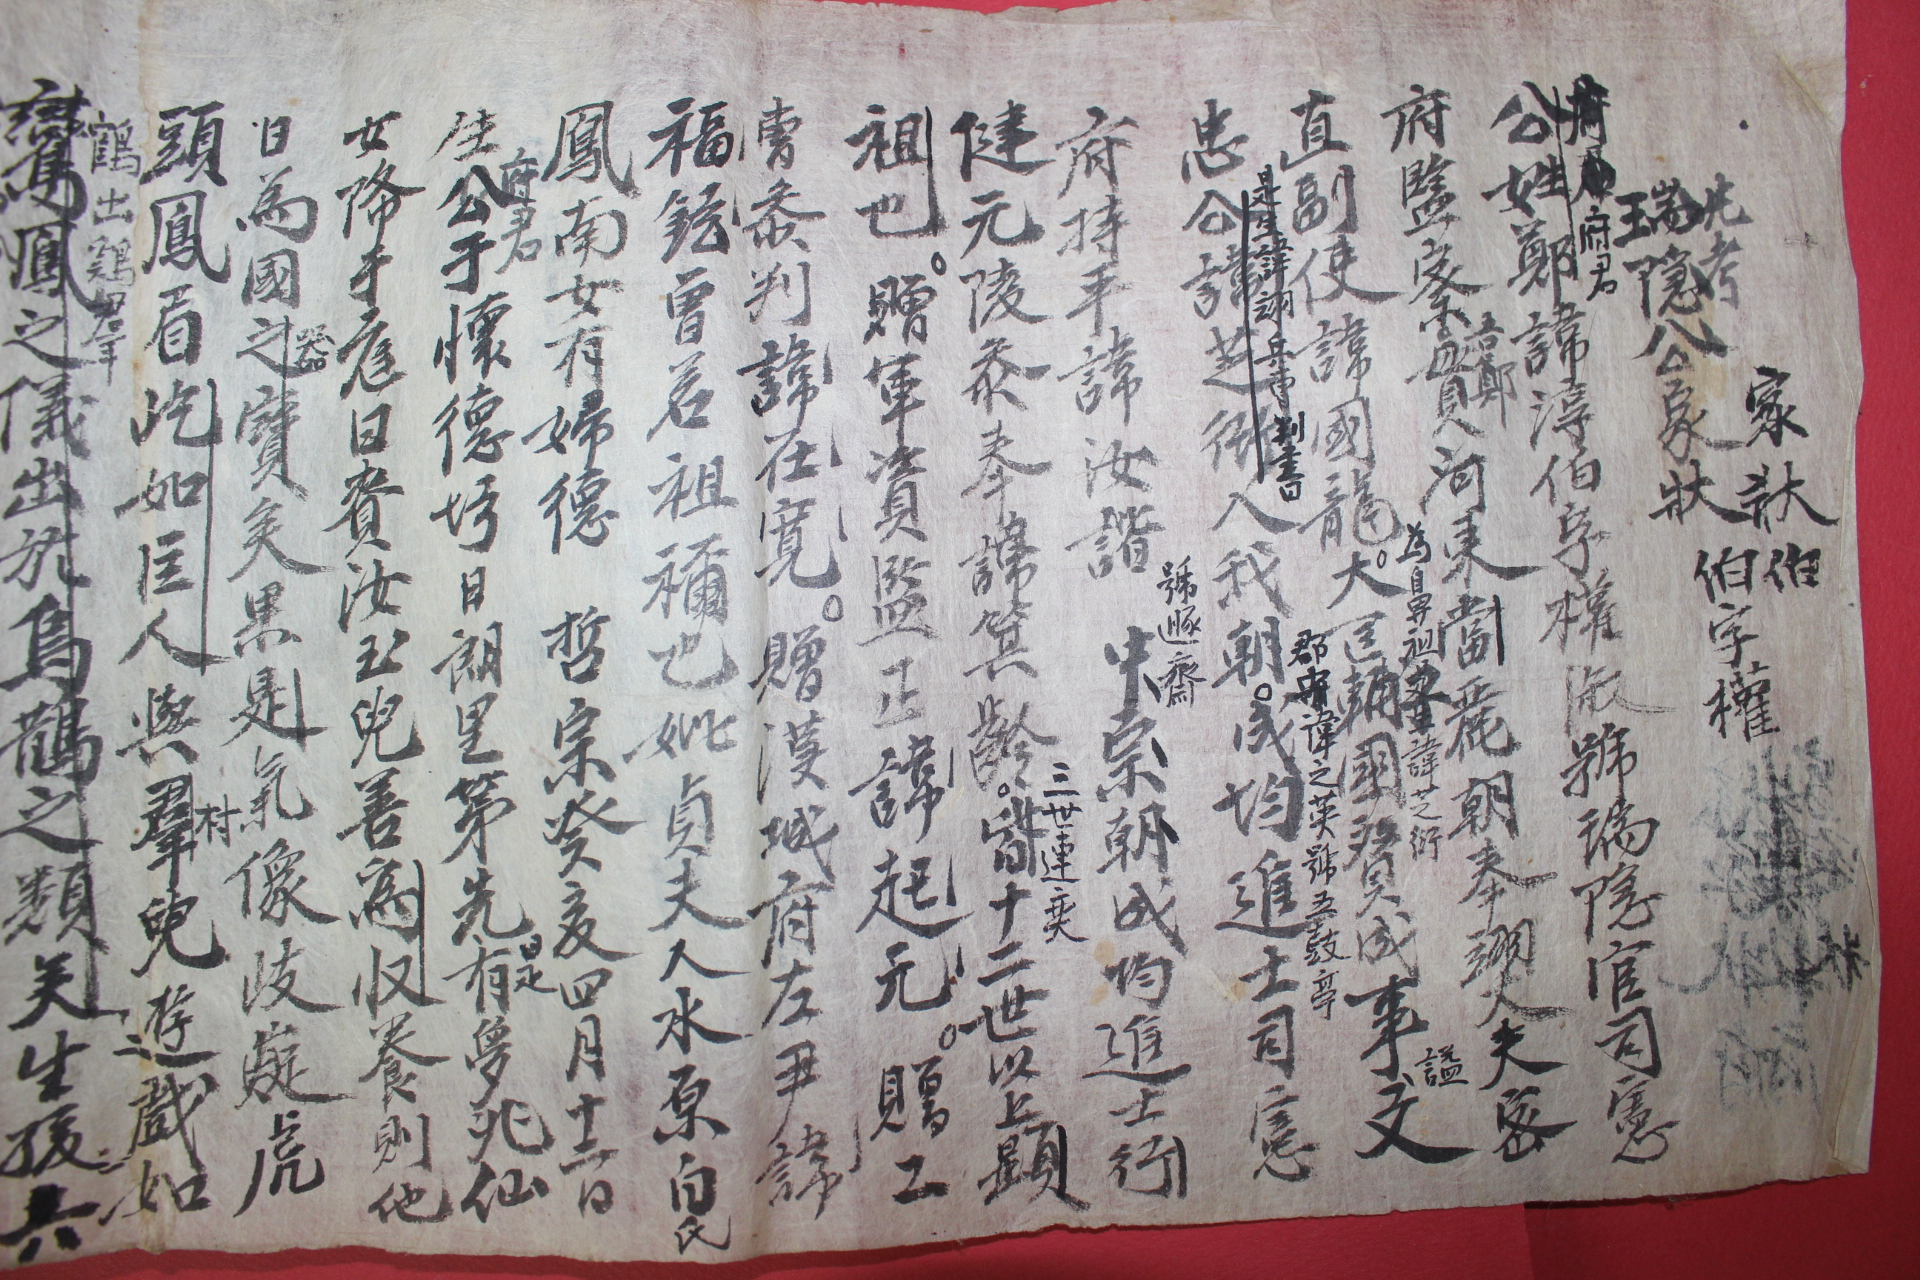 家狀
先考
瑞隱公家狀
伯字權
府君
公姓鄭諱淳伯字權淑號瑞隱官司憲
府監察吾鄭貫河東當麗朝奉翊大夫密
為鼻祖 諱芝衍
直副使諱國龍大匡輔國贊成事文
郡宰諱之英號五鼓亭
諡
忠公諱芝衍入我朝成均進士司憲
是生諱翊 判書
府持平諱汝諧 中宗朝成均進士行
號遯齋
健元陵參奉諱箕齡皆十二世以上顯
三世連奕
祖也贈軍資監正諱起元贈工
曹參判諱在寬贈漢城府左尹諱
福鉉曾若祖禰也妣貞夫人水原白氏
鳳南女有婦德 哲宗癸亥四月十二日
生公于懷德坊日朗里第先有夢兆仙
府君
女降手應曰賚汝玉兒善為收養則他
日為國之寶矣果是氣像岐嶷虎
器
頭鳳眉屹如巨人與羣兒遊戲如
村
鶴出鷄羣
鸞鳳之儀出於烏鵲之類矣生孩六